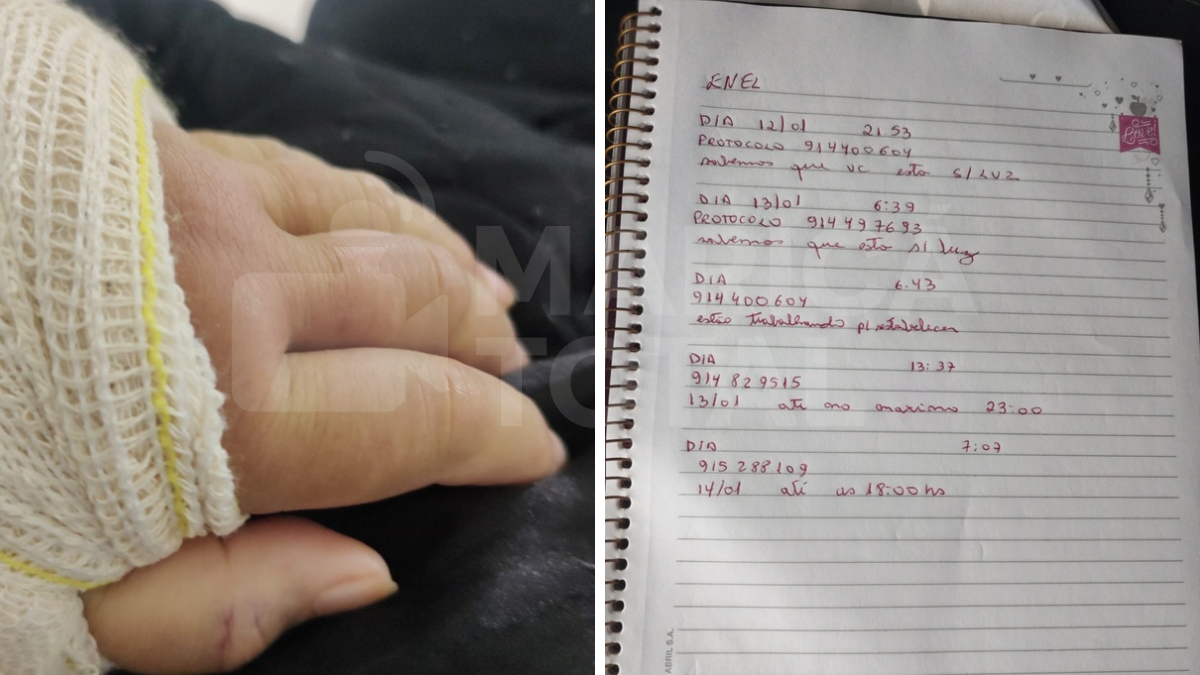 MARICÁ
TOTAL
ENEL
DIA 12/01 21:53
PROTOCOLO 914400604
sabemos que vc esta s/LUZ
DIA 13/01 6:39
PROTOCOLO 914497693
sabemos que esta s/ luz
DIA 6:43
914400604
estão trabalhando p/ restabelecer
DIA 13:37
914829515
13/01 até no maximo 23:00
DIA 7:07
915288109
14/01 até as 18:00 hs
ABRIL S.A.